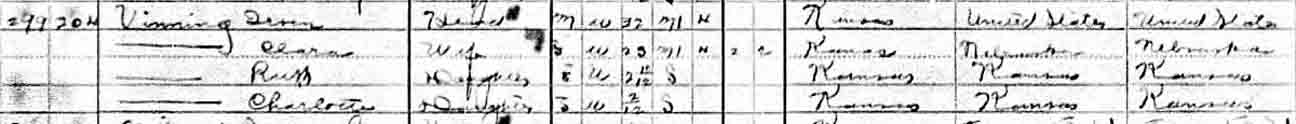 299 204 Vinning Head M W 32 M1 4 Kansas United States United States
Clara Wife F W 23 M1 4 2 2 Kansas Nebraska Nebraska
Ruth Daughter F W 2 11/12 S Kansas Kansas Kansas
Charlotte Daughter F W 2/12 S Kansas Kansas Kansas